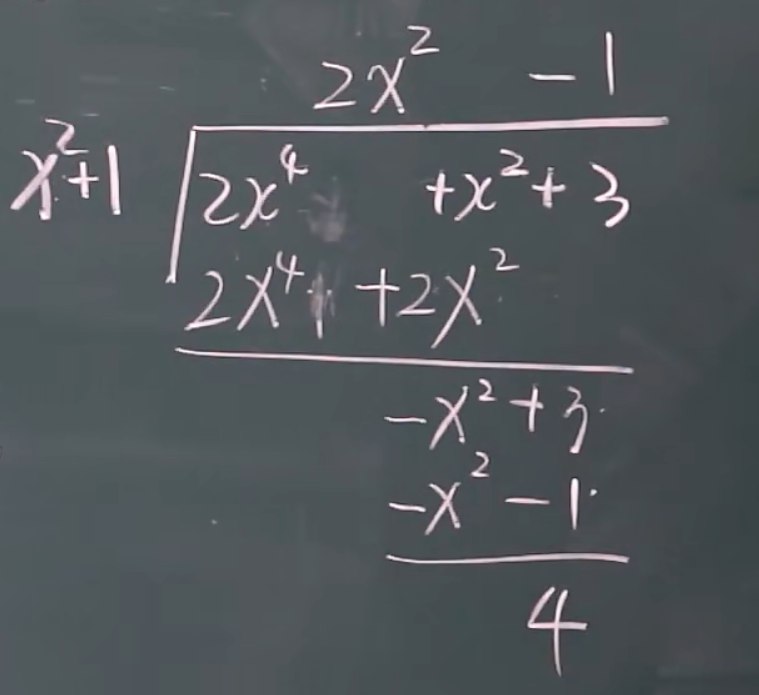 2x² - 1
x²+1 2x⁴ +x²+3
2x⁴ +2x²
-x²+3
-x²-1
4